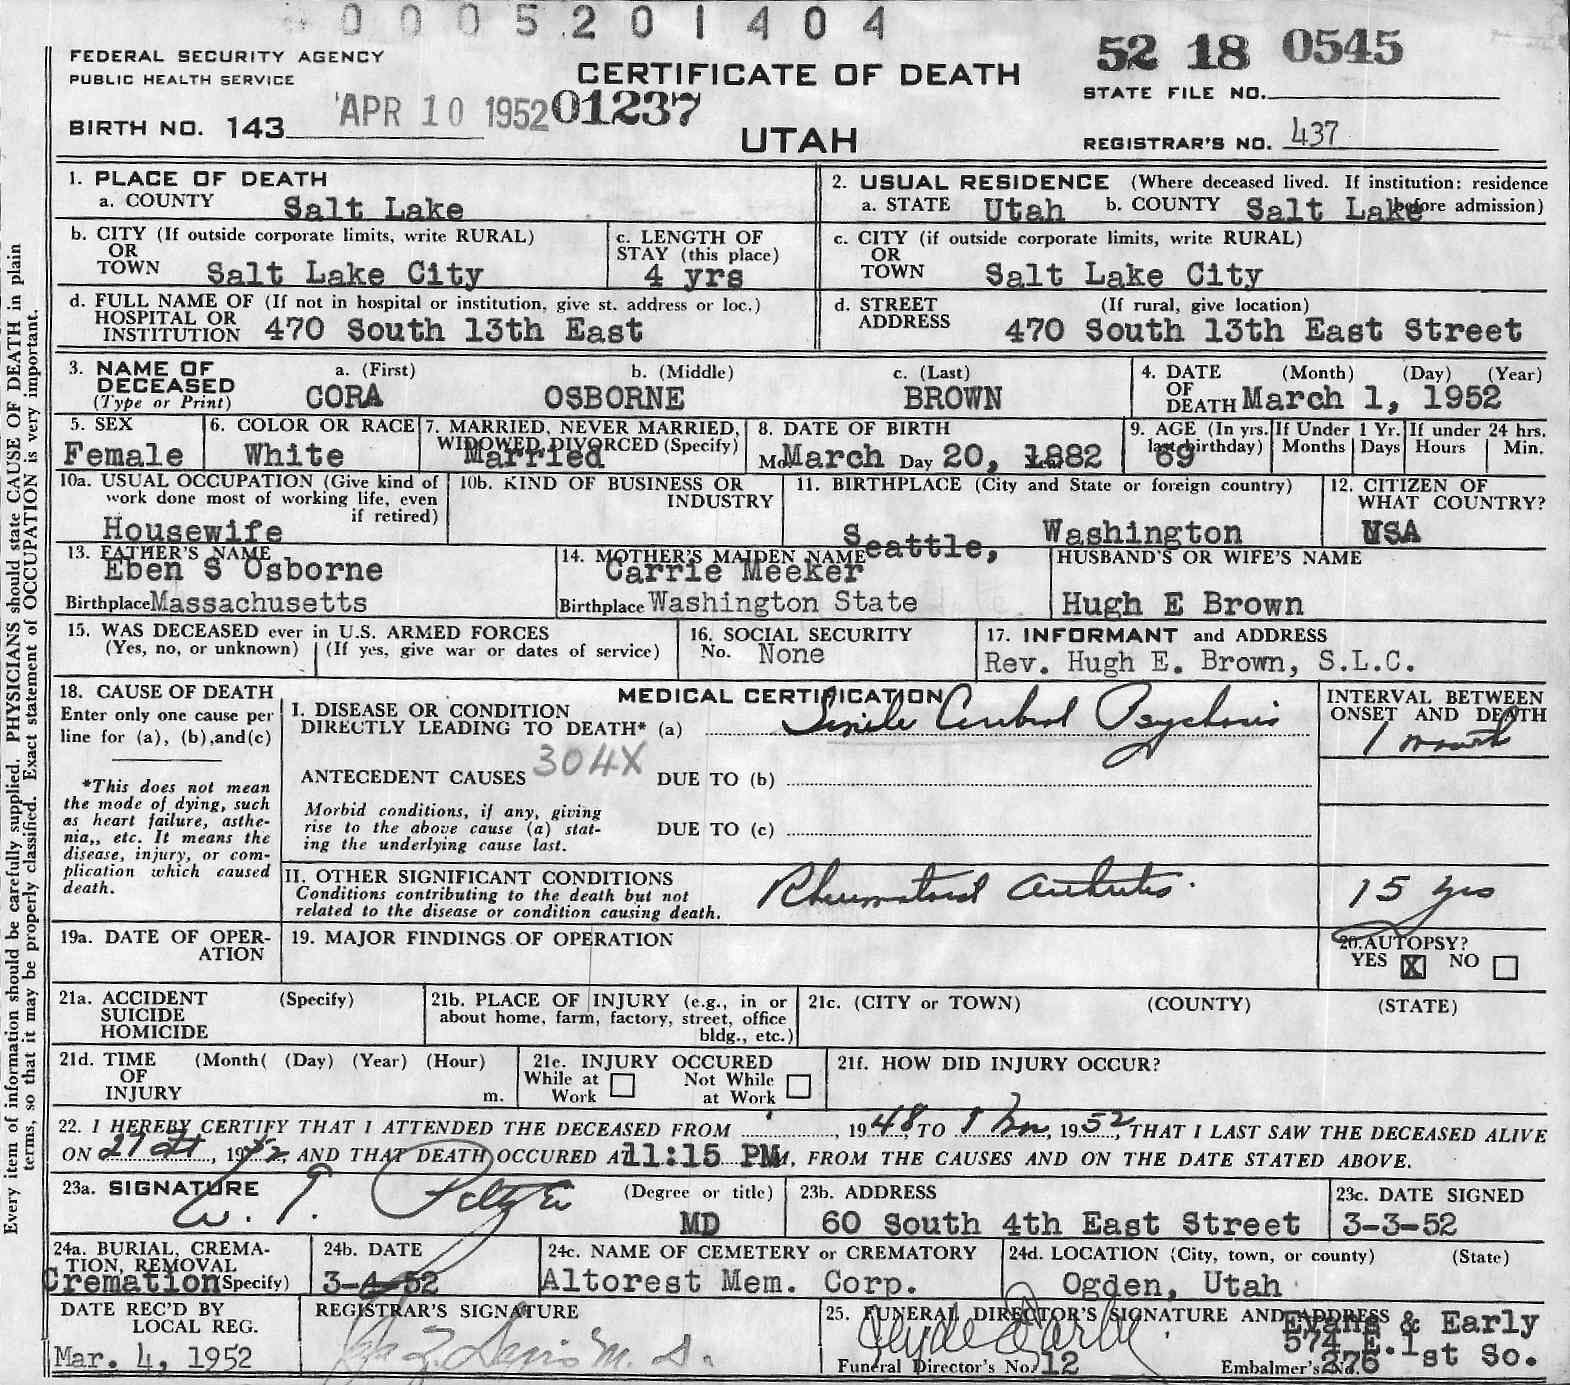 0005201404
52 18 0545
FEDERAL SECURITY AGENCY
PUBLIC HEALTH SERVICE
CERTIFICATE OF DEATH
STATE FILE NO.
APR 10 1952 01237
BIRTH NO. 143
UTAH
REGISTRAR'S NO. 437
1. PLACE OF DEATH
a. COUNTY Salt Lake
2. USUAL RESIDENCE (Where deceased lived. If institution: residence before admission)
a. STATE Utah b. COUNTY Salt Lake
b. CITY (If outside corporate limits, write RURAL)
OR
TOWN Salt Lake City
c. LENGTH OF
STAY (this place)
4 yrs
c. CITY (if outside corporate limits, write RURAL)
OR
TOWN Salt Lake City
d. FULL NAME OF (If not in hospital or institution, give st. address or loc.)
HOSPITAL OR
INSTITUTION 470 South 13th East
d. STREET (If rural, give location)
ADDRESS 470 South 13th East Street
3. NAME OF
DECEASED
(Type or Print)
a. (First) b. (Middle) c. (Last)
CORA OSBORNE BROWN
4. DATE (Month) (Day) (Year)
OF
DEATH March 1, 1952
5. SEX
Female
6. COLOR OR RACE
White
7. MARRIED, NEVER MARRIED,
WIDOWED, DIVORCED (Specify)
Married
8. DATE OF BIRTH
Mo March Day 20, 1882
9. AGE (In yrs. last birthday)
69
If Under 1 Yr.
Months Days
If under 24 hrs.
Hours Min.
10a. USUAL OCCUPATION (Give kind of
work done most of working life, even
if retired)
Housewife
10b. KIND OF BUSINESS OR
INDUSTRY
11. BIRTHPLACE (City and State or foreign country)
Seattle, Washington
12. CITIZEN OF
WHAT COUNTRY?
USA
13. FATHER'S NAME
Eben S Osborne
Birthplace Massachusetts
14. MOTHER'S MAIDEN NAME
Carrie Meeker
Birthplace Washington State
HUSBAND'S OR WIFE'S NAME
Hugh E Brown
15. WAS DECEASED ever in U.S. ARMED FORCES
(Yes, no, or unknown) (If yes, give war or dates of service)
16. SOCIAL SECURITY
No. None
17. INFORMANT and ADDRESS
Rev. Hugh E. Brown, S.L.C.
18. CAUSE OF DEATH
Enter only one cause per
line for (a), (b),and(c)
*This does not mean
the mode of dying, such
as heart failure, asthe-
nia,, etc. It means the
disease, injury, or com-
plication which caused
death.
MEDICAL CERTIFICATION
I. DISEASE OR CONDITION
DIRECTLY LEADING TO DEATH* (a) Senile Cerebral Psychosis
INTERVAL BETWEEN
ONSET AND DEATH
1 month
304X
ANTECEDENT CAUSES DUE TO (b)
Morbid conditions, if any, giving
rise to the above cause (a) stat-
ing the underlying cause last.
DUE TO (c)
II. OTHER SIGNIFICANT CONDITIONS
Conditions contributing to the death but not
related to the disease or condition causing death.
Rheumatoid Arthritis. 15 yrs
19a. DATE OF OPER-
ATION
19. MAJOR FINDINGS OF OPERATION
20. AUTOPSY?
YES X NO
21a. ACCIDENT (Specify)
SUICIDE
HOMICIDE
21b. PLACE OF INJURY (e.g., in or
about home, farm, factory, street, office
bldg., etc.)
21c. (CITY or TOWN) (COUNTY) (STATE)
21d. TIME (Month( (Day) (Year) (Hour)
OF
INJURY m.
21e. INJURY OCCURED
While at Work Not While at Work
21f. HOW DID INJURY OCCUR?
22. I HEREBY CERTIFY THAT I ATTENDED THE DECEASED FROM , 1948, TO 1 Mar, 1952, THAT I LAST SAW THE DECEASED ALIVE
ON 27, 1952, AND THAT DEATH OCCURED AT 11:15 PM M, FROM THE CAUSES AND ON THE DATE STATED ABOVE.
23a. SIGNATURE (Degree or title)
W. T. MD
23b. ADDRESS
60 South 4th East Street
23c. DATE SIGNED
3-3-52
24a. BURIAL, CREMA-
TION, REMOVAL
Cremation (Specify)
24b. DATE
3-4-52
24c. NAME OF CEMETERY or CREMATORY
Altorest Mem. Corp.
24d. LOCATION (City, town, or county) (State)
Ogden, Utah
DATE REC'D BY
LOCAL REG.
Mar. 4, 1952
REGISTRAR'S SIGNATURE
M. D.
25. FUNERAL DIRECTOR'S SIGNATURE AND ADDRESS
Evans & Early
574 E. 1st So.
Funeral Director's No. 12
Embalmer's No. 276
Every item of information should be carefully supplied. PHYSICIANS should state CAUSE OF DEATH in plain
terms, so that it may be properly classified. Exact statement of OCCUPATION is very important.